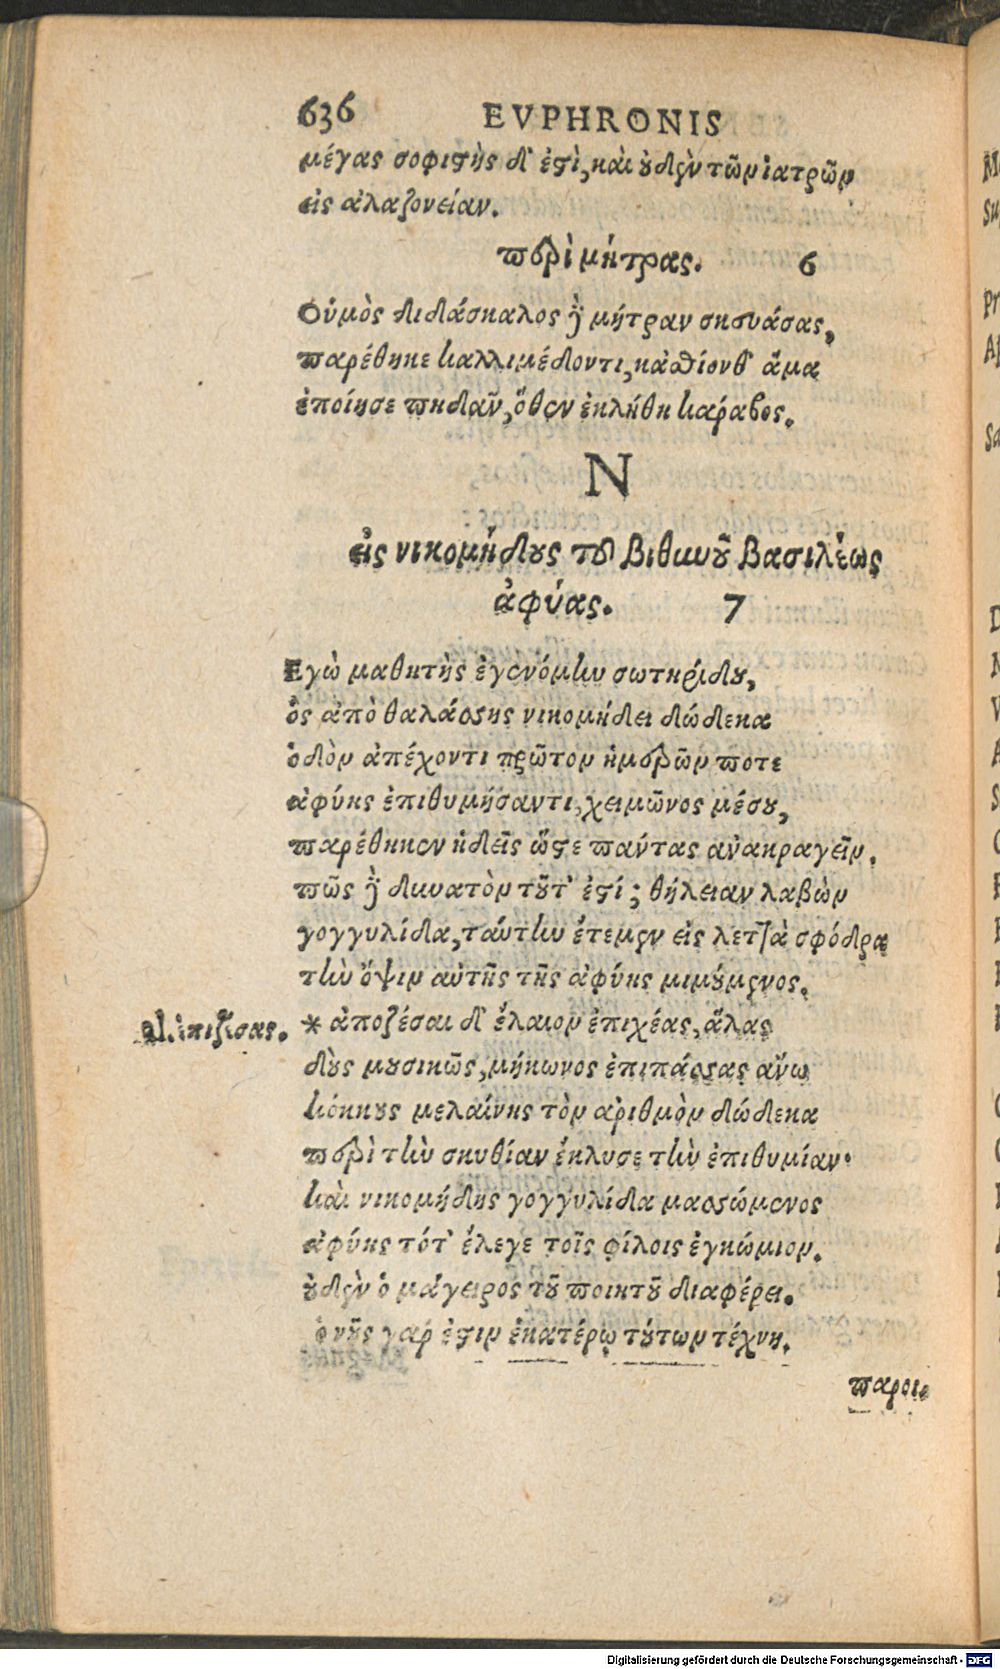 636 EVPHRONIS
μέγας σοφιστὴς δ' ἐστὶ, καὶ οὐδὲν τῶν ἰατρῶν
εἰς ἀλαζονείαν.
περὶ μήτρας. 6
Οὑμὸς διδάσκαλος δὲ μήτραν σκευάσας,
παρέθηκε καλλιμέδοντι, κἀσθίονθ' ἅμα
ἐποίησε πηδᾶν, ὅθεν ἐκλήθη κάραβος.
N
εἰς νικομήδους τοῦ βιθυνοῦ βασιλέως
ἀφύας. 7
Εγὼ μαθητὴς ἐγενόμην σωτηρίδου,
ὃς ἀπὸ θαλάσσης νικομήδει δώδεκα
ὁδὸν ἀπέχοντι πρῶτον ἡμερῶν ποτε
ἀφύης ἐπιθυμήσαντι, χειμῶνος μέσου,
παρέθηκεν ἡδεῖς ὥστε πάντας ἀνακραγεῖν.
πῶς δὲ δυνατὸν τοῦτ' ἐστί; θήλειαν λαβὼν
γογγυλίδα, ταύτην ἔτεμεν εἰς λεπτὰ σφόδρα
τὴν ὄψιν αὐτῆς τῆς ἀφύης μιμούμενος.
al. ἐπιζέσας. * ἀποζέσαι δ' ἔλαιον ἐπιχέας, ἅλας
δοὺς μουσικῶς, μήκωνος ἐπιπάσσας ἄνω
κόκκους μελαίνης τὸν ἀριθμὸν δώδεκα
περὶ τὴν σκυθίαν ἔκλυσε τὴν ἐπιθυμίαν·
καὶ νικομήδης γογγυλίδα μασσώμενος
ἀφύης τότ' ἔλεγε τοῖς φίλοις ἐγκώμιον.
οὐδὲν ὁ μάγειρος τοῦ ποιητοῦ διαφέρει.
ὁ νοῦς γάρ ἐστιν ἑκατέρῳ τούτων τέχνη.
παροι-
Digitalisierung gefördert durch die Deutsche Forschungsgemeinschaft - DFG